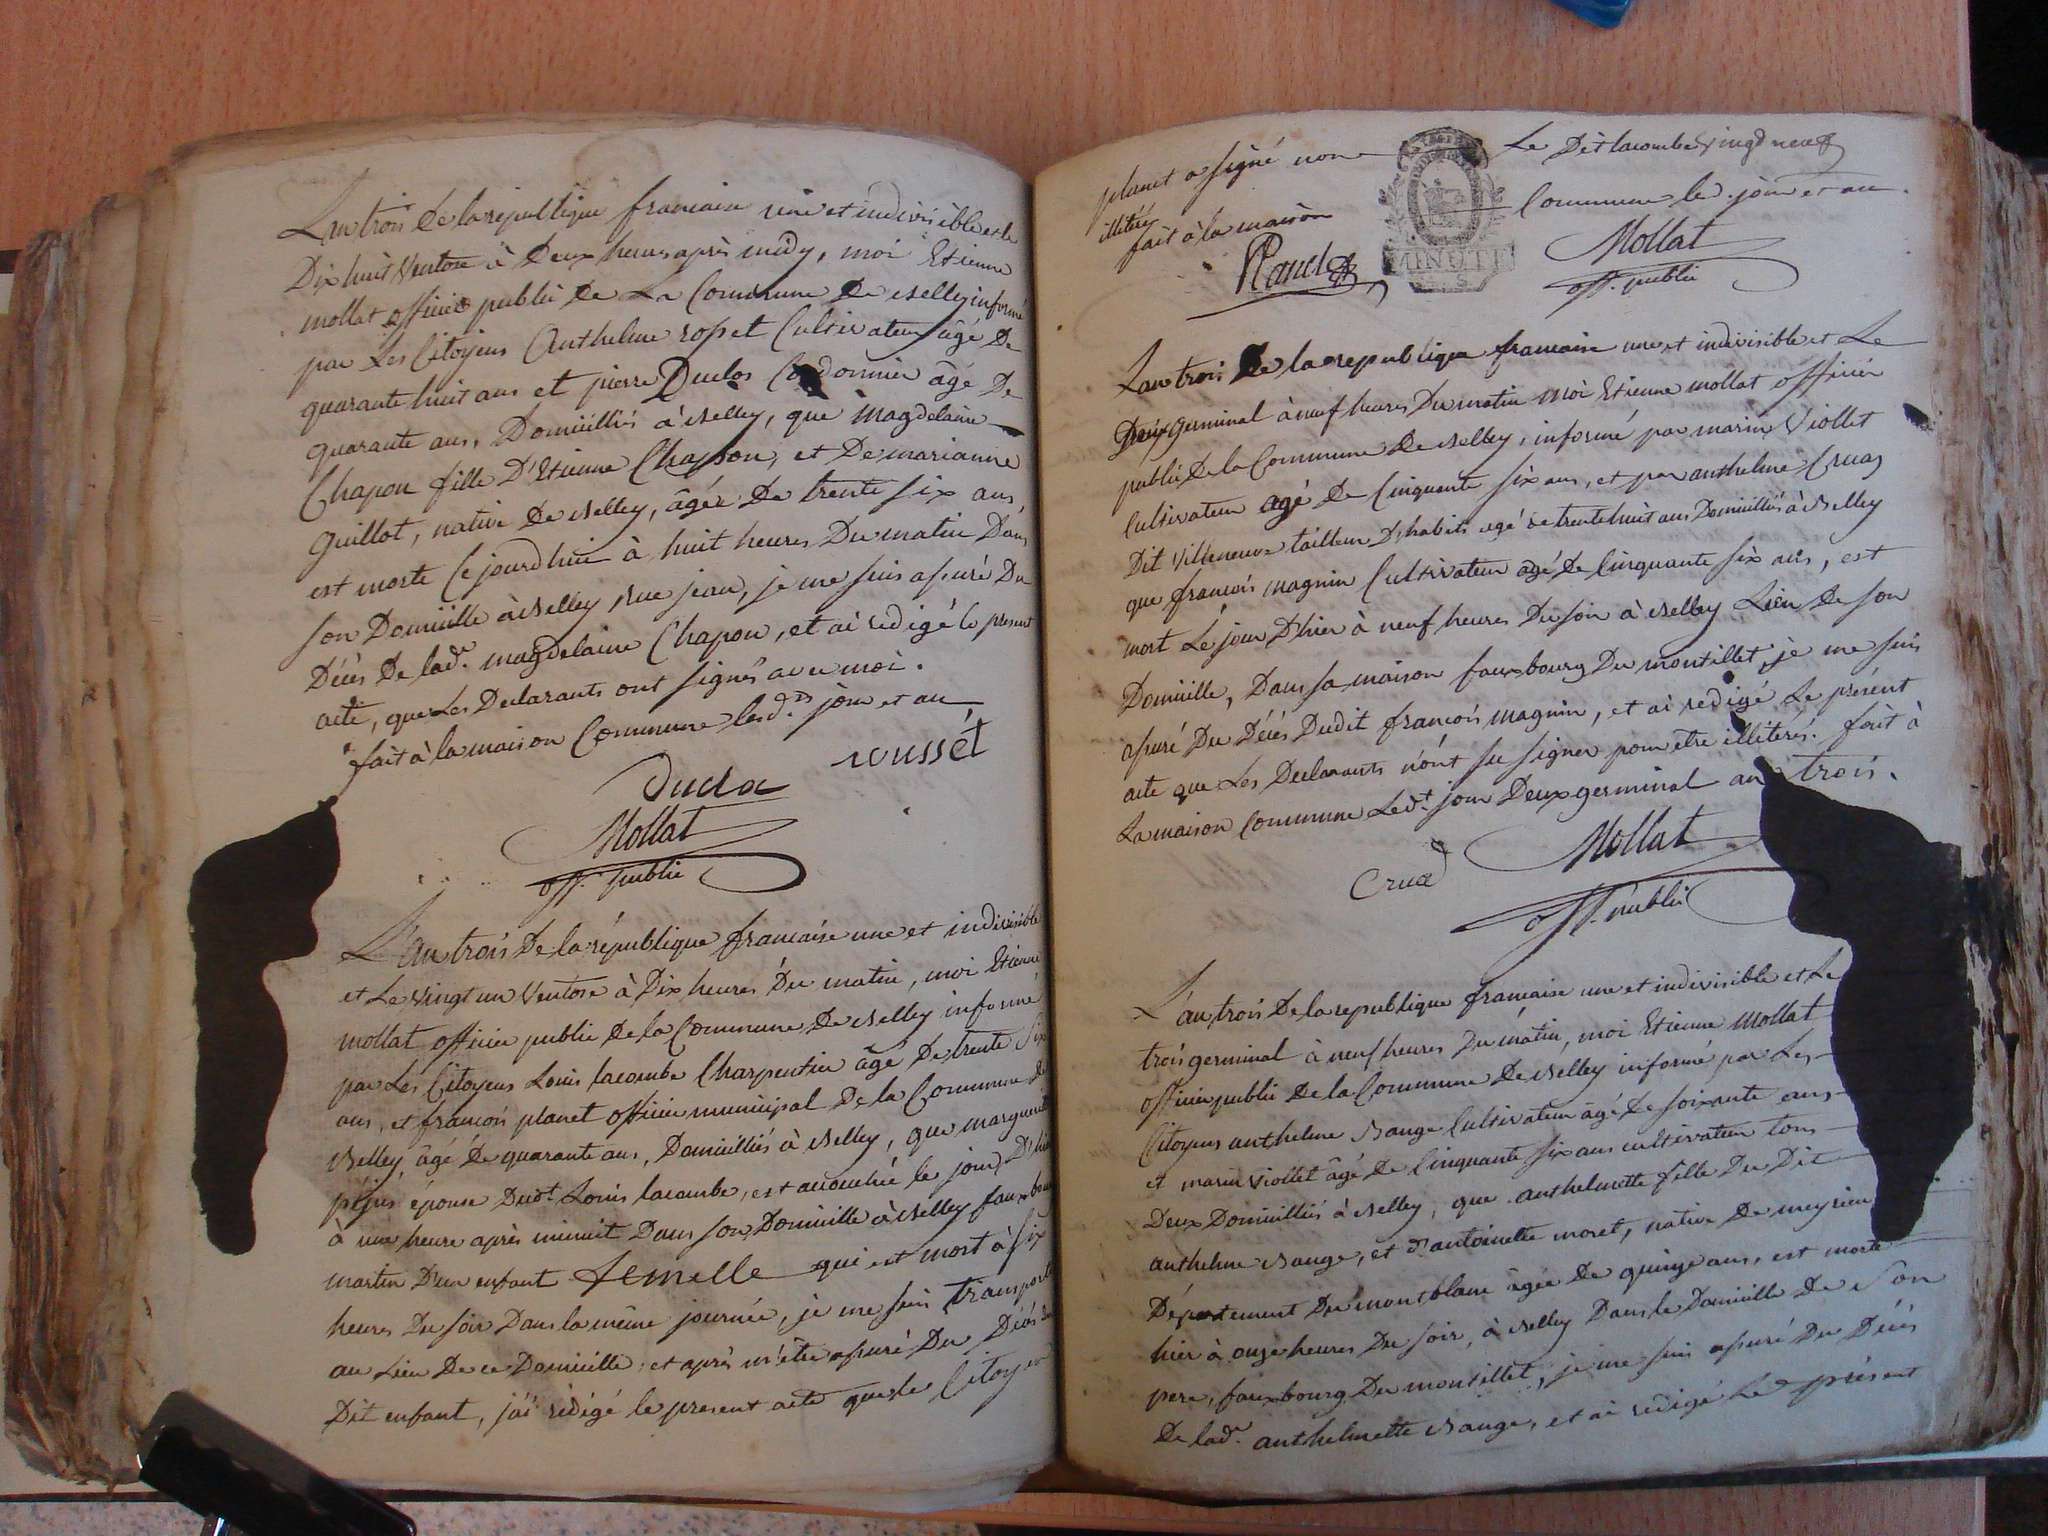 L'an trois De la republique francaise une et indivisible et le
Dix huit Ventose à Deux heures après midy, moi Etienne
mollat officie public De La Commune De Belley informé
par Les Citoyens Anthelme rosset Cultivateur âgé De
quarante huit ans et pierre Duclos Cordonnier âgé De
quarante ans, Domiciliés à Belley, que Magdelaine
Chapon fille D'Etienne Chapon, et De marianne
Guillot, native De Belley, âgée De trente six ans
est morte Cejourdhui à huit heures Du matin Dans
son Domicille à Belley, rue jean, je me suis assuré Du
Décès De lad.e magdelaine Chapon, et ai redigé le present
acte, que Les Declarants ont signés avec moi.
fait à la maison Commune lesd.ts jour et an
rousset
Ducla
Mollat
off. public
L'an trois De la république francaise une et indivisible
et Le Vingt un Ventose à Dix heures Du matin, moi Etienne
mollat officier public De la Commune De Belley informé
par Les Citoyens Louis lacombe Charpentier âgé De trente six
ans, et francois planet officier municipal De la Commune de
Belley, âgé De quarante ans, Domiciliés à Belley, que marguerite
pejus épouse Dudt Louis lacombe, est accouchée le jour D'hier
à une heure après minuit Dans son Domicille à Belley faux bourg
martin D'un enfant femelle qui est mort à six
heures Du soir Dans la même journée, je me suis transporté
au Lieu De ce Domicille, et après m'être assuré Du Décès du
Dit enfant, j'ai rédigé le present acte que le Citoyen
planet a signé non Le Dit lacombe
illitéré
fait à la maison Commune le jour et an.
MINUTE
Planet
Mollat
off. public
L'an trois De la republique francaise une et indivisible et Le
Deux germinal à neuf heures Du matin moi Etienne mollat officier
public De la Commune De Belley, informé par marin Viollet
Cultivateur agé De Cinquante six ans, et par anthelme Cruaz
Dit Villeneuve tailleur D'habits agé de trente huit ans Domiciliés à Belley
que francois magnin Cultivateur âgé De Cinquante six ans, est
mort Le jour D'hier à neuf heures Du soir à Belley Lieu De son
Domicille, Dans sa maison faux bourg Du montillet, je me suis
assuré Du Décès Dudit francois magnin, et ai redigé Le présent
acte que Les Declarants n'ont su signer pour être illitérés. fait à
La maison Commune Ledt jour Deux germinal an trois.
Cruad
Mollat
off. public
L'an trois De la republique francaise une et indivisible et Le
trois germinal à neuf heures Du matin, moi Etienne mollat
officier public De la Commune De Belley informé par Les
Citoyens anthelme Bange Cultivateur âgé De soixante ans
et marin Viollet âgé De Cinquante six ans cultivateur tous
Deux Domiciliés à Belley, que anthelmette fille Du Dit
anthelme Bange, et D'antoinette moret, native De meyrieu
Département Du montblanc âgée De quinze ans, est morte
hier à onze heures Du soir, à Belley Dans le Domicille De son
pere, faux bourg Du montillet, je me suis assuré Du Décès
De lad.e anthelmette Bange, et ai redigé Le présent